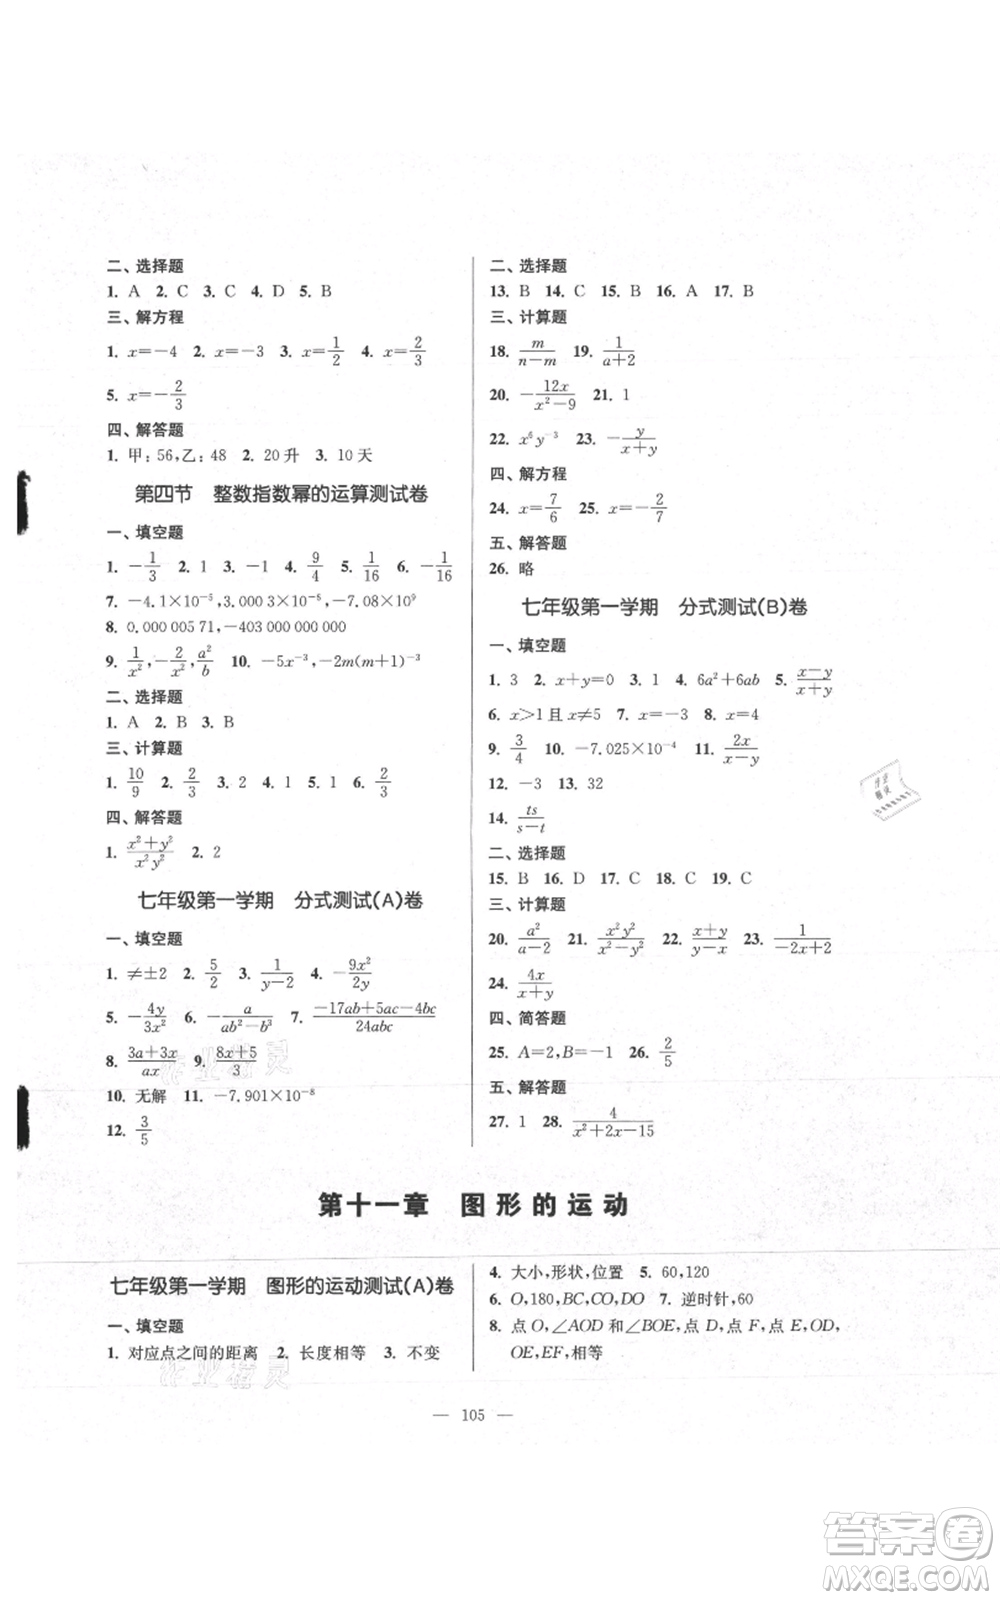 二、选择题
1. A 2. C 3. C 4. D 5. B
三、解方程
1. x=-4 2. x=-3 3. x=1/2 4. x=2/3
5. x=-2/3
四、解答题
1. 甲:56,乙:48 2. 20升 3. 10天
第四节 整数指数幂的运算测试卷
一、填空题
1. -1/3 2. 1 3. -1 4. 9/4 5. 1/16 6. -1/16
7. -4.1×10⁻⁵,3.000 3×10⁻⁵,-7.08×10⁹
8. 0.000 005 71,-403 000 000 000
9. 1/x²,-2/x²,a²/b 10. -5x⁻³,-2m(m+1)⁻³
二、选择题
1. A 2. B 3. B
三、计算题
1. 10/9 2. 2/3 3. 2 4. 1 5. 1 6. 2/3
四、解答题
1. (x²+y²)/(x²y²) 2. 2
七年级第一学期 分式测试(A)卷
一、填空题
1. ≠±2 2. 5/2 3. 1/(y-2) 4. -9x²/2y
5. -4y/3x² 6. -a/(ab²-b³) 7. (-17ab+5ac-4bc)/24abc
8. (3a+3x)/ax 9. (8x+5)/3
10. 无解 11. -7.901×10⁻⁸
12. 3/5
二、选择题
13. B 14. C 15. B 16. A 17. B
三、计算题
18. m/(n-m) 19. 1/(a+2)
20. -12x/(x²-9) 21. 1
22. x⁶y⁻³ 23. -y/(x+y)
四、解方程
24. x=7/6 25. x=-2/7
五、解答题
26. 略
七年级第一学期 分式测试(B)卷
一、填空题
1. 3 2. x+y=0 3. 1 4. 6a²+6ab 5. (x-y)/(x+y)
6. x>1且x≠5 7. x=-3 8. x=4
9. 3/4 10. -7.025×10⁻⁴ 11. 2x/(x-y)
12. -3 13. 32
14. ts/(s-t)
二、选择题
15. B 16. D 17. C 18. C 19. C
三、计算题
20. a²/(a-2) 21. x²y²/(x²-y²) 22. (x+y)/(y-x) 23. 1/(-2x+2)
24. 4x/(x+y)
四、简答题
25. A=2,B=-1 26. 2/5
五、解答题
27. 1 28. 4/(x²+2x-15)
第十一章 图形的运动
七年级第一学期 图形的运动测试(A)卷
一、填空题
1. 对应点之间的距离 2. 长度相等 3. 不变
4. 大小,形状,位置 5. 60,120
6. O,180,BC,CO,DO 7. 逆时针,60
8. 点O,∠AOD和∠BOE,点D,点F,点E,OD,
OE,EF,相等
— 105 —
作业精灵
作业精灵
作业精灵
答案卷
MXQE.COM